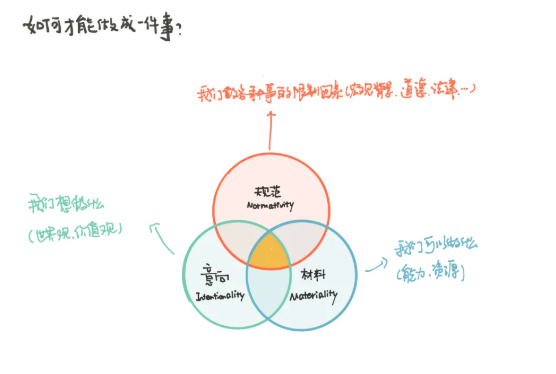 如何才能做成一件事？
我们做各种事的限制因素(宏观背景、道德、法律…)
规范
Normativity
我们想做什么
(世界观、价值观)
意向
Intentionality
材料
Materiality
我们可以做什么
(能力、资源)